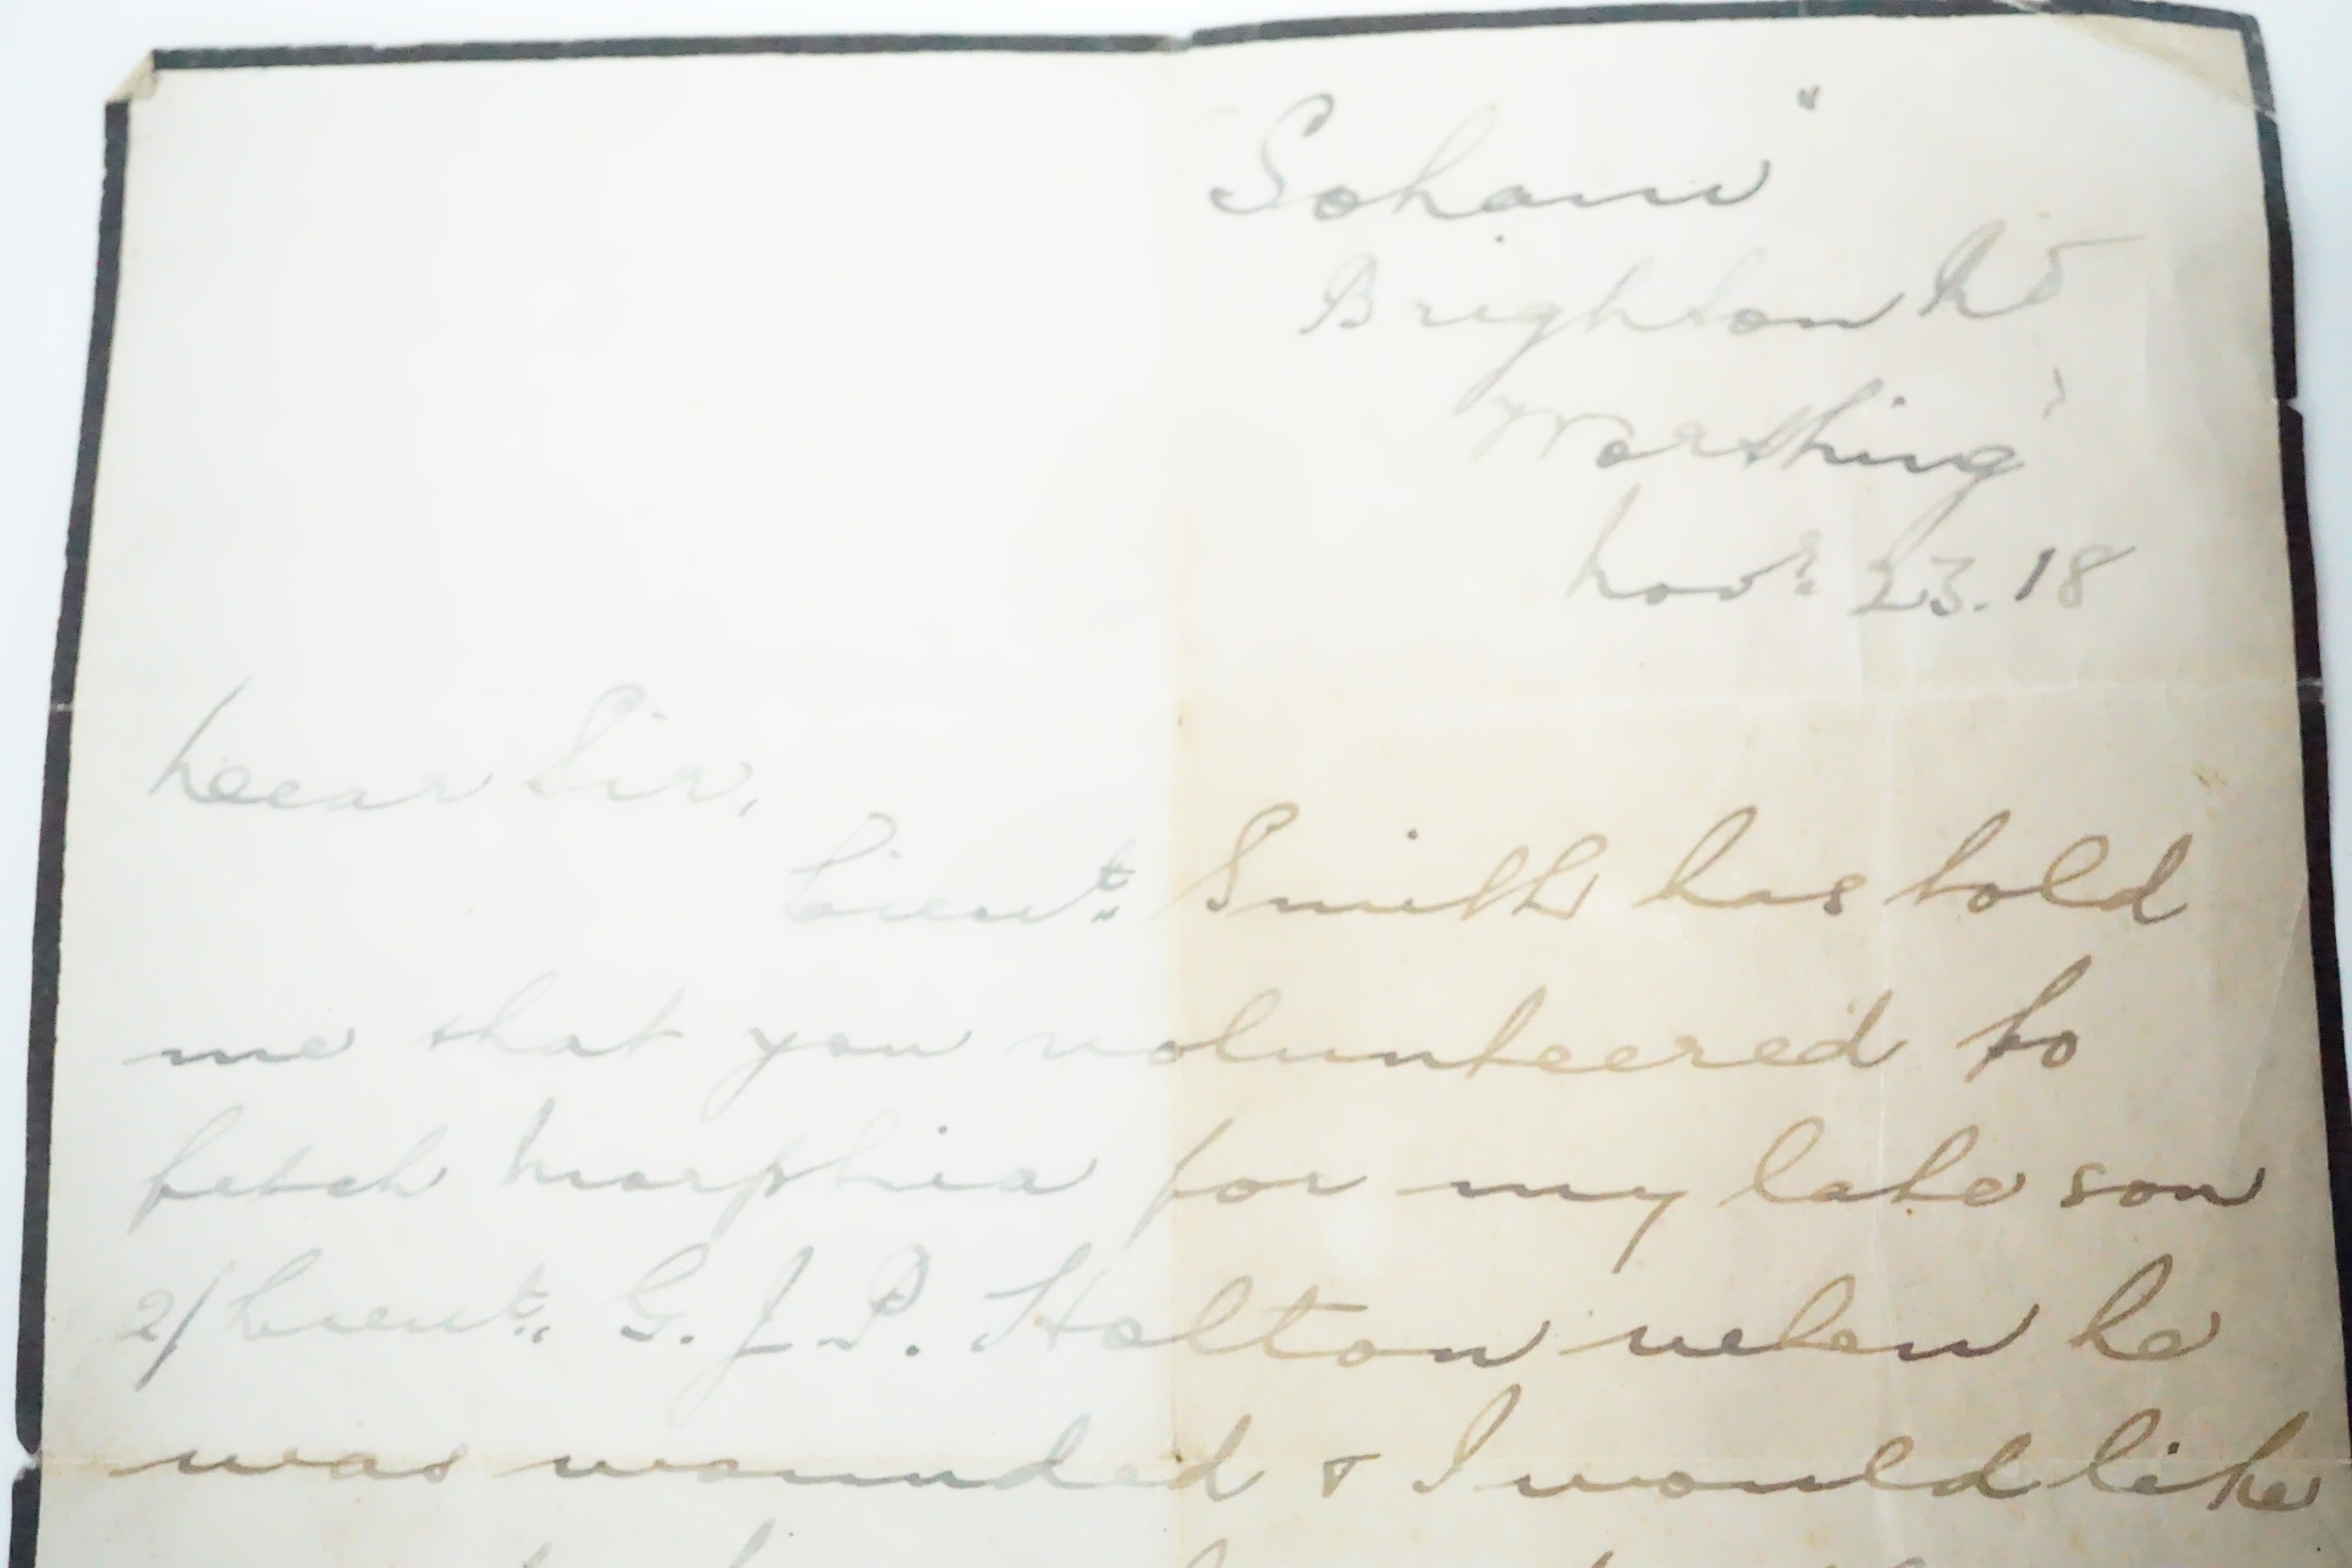 "Soham"
Brighton Rd
Worthing
Novr. 23. 18
Dear Sir,
Lieut. Smith has told
me that you volunteered to
fetch morphia for my late son
2/Lieut. G. J. P. Holton when he
was wounded & I would like